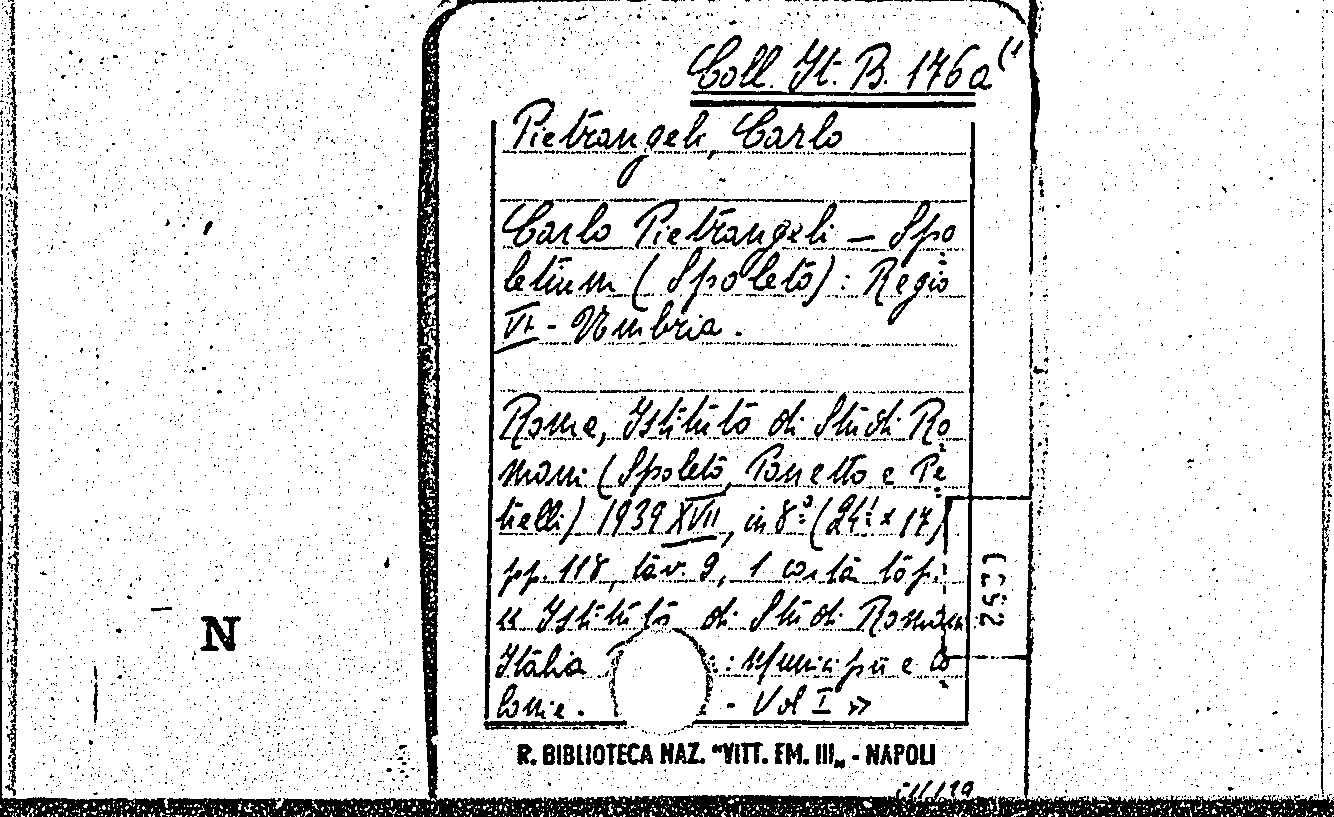 Coll. It. B. 176a (1
Pietrangeli, Carlo
Carlo Pietrangeli - Spo
letium (Spoleto) : Regio
VI - Umbria.
Roma, Istituto di Studi Ro
mani (Spoleto, Panetto e Pe
trelli) 1939 XVII, in 8º (24 x 17)
pp. 118, tav. 9, 1 carta top.
« Istituto di Studi Romani
Italia : Municipii e Co
lonie. - Vol I »
R. BIBLIOTECA NAZ. "VITT. EM. III„ - NAPOLI
N